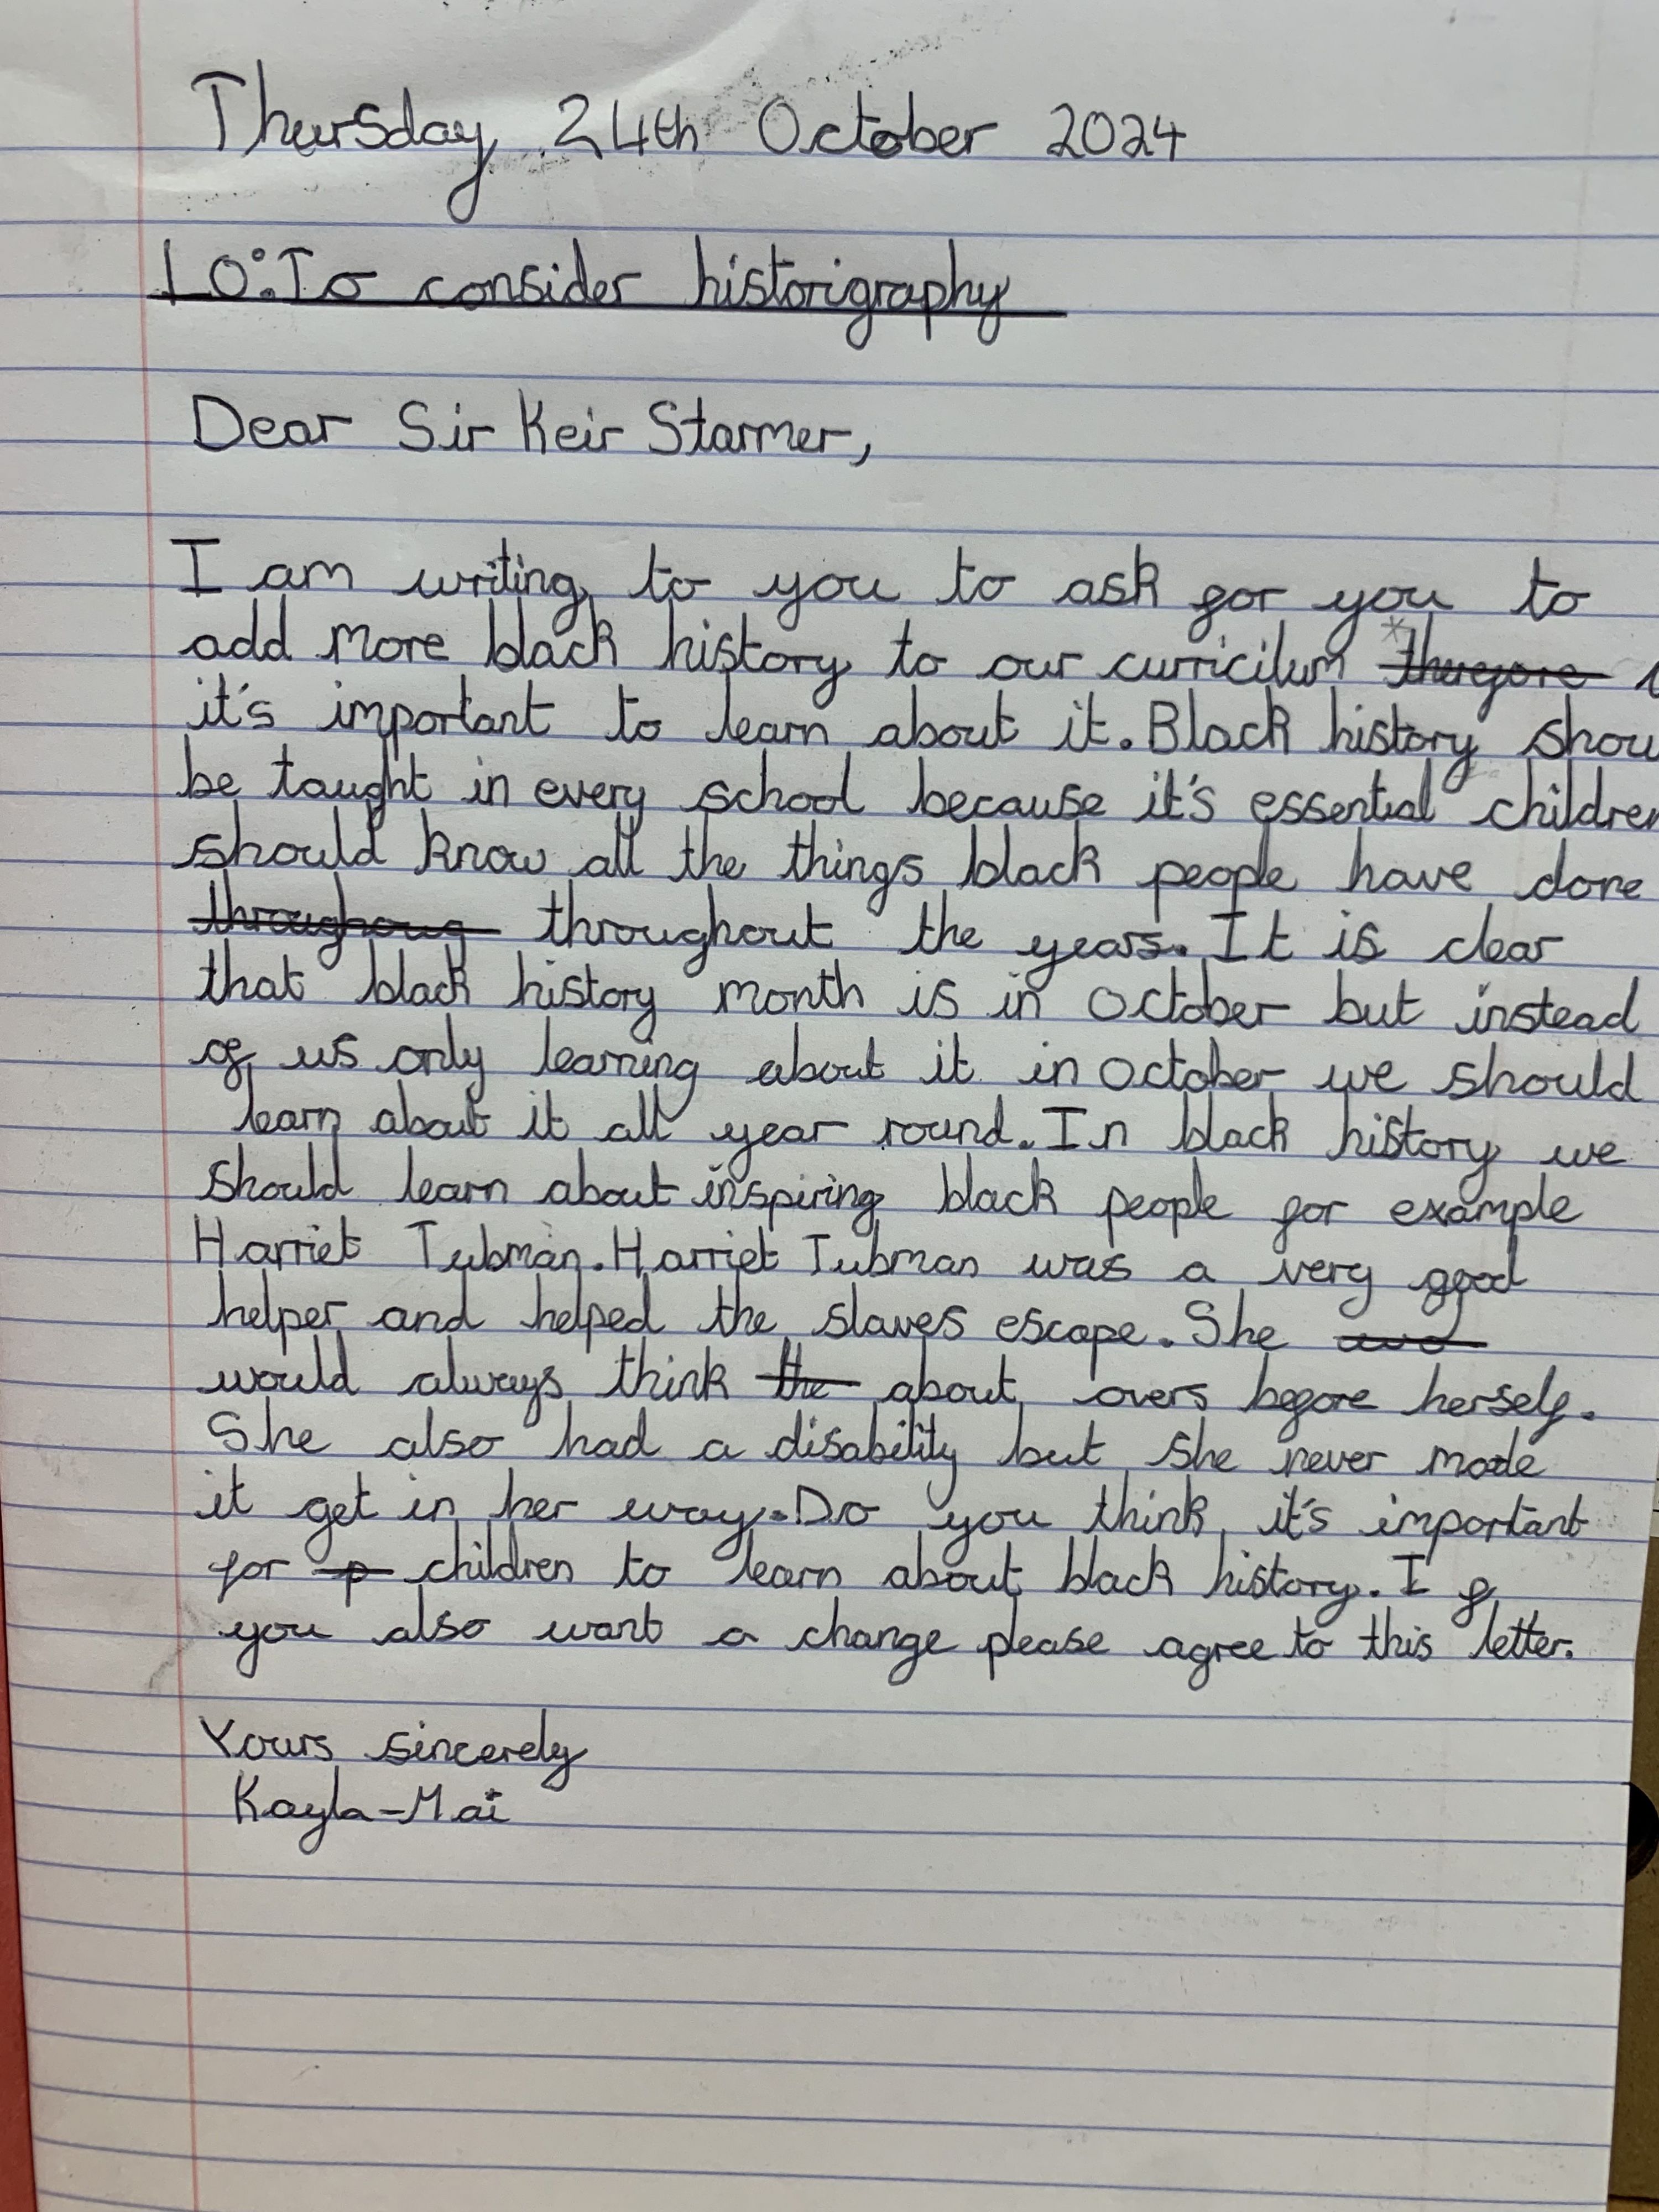 Thursday 24th October 2024
LO: To consider historigraphy
Dear Sir Keir Starmer,
I am writing to you to ask for you to
add more black history to our curricilum * therefore
it's important to learn about it. Black history shou
be taught in every school because it's essential children
should know all the things black people have done
throughoug throughout the years. It is clear
that black history month is in October but instead
of us only learning about it in October we should
learn about it all year round. In black history we
should learn about inspiring black people for example
Harriet Tubman. Harriet Tubman was a very good
helper and helped the slaves escape. She
would always think the about overs before herself.
She also had a disability but she never made
it get in her way. Do you think it's important
for p children to learn about black history. I f
you also want a change please agree to this letter.
Yours sincerely
Kayla-Mai